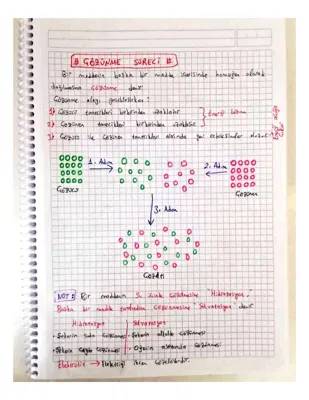 # ÇÖZÜNME SÜRECİ #
Bir maddenin başka bir madde içerisinde homojen olarak
dağılmasına çözünme denir.
Çözünme olayı gerçekleşirken:
1) Çözücü tanecikleri birbirinden uzaklaşır
2) Çözünen tanecikleri birbirinden uzaklaşır
3) Çözücü ile çözünen tanecikleri arasında yeni etkileşimler oluşur
1. Adım
2. Adım
Çözücü
Çözünen
3. Adım
Çözelti
NOT: Bir maddenin suda çözünmesine "Hidratasyon",
Başka bir madde içerisinde çözünmesine "Solvatasyon" denir
Hidratasyon
Solvatasyon
• Şekerin suda çözünmesi
• Şekerin alkolde çözünmesi
çözünmesi
çözünmesi
Elektrolit → Elektriği ileten çözeltilerdir.